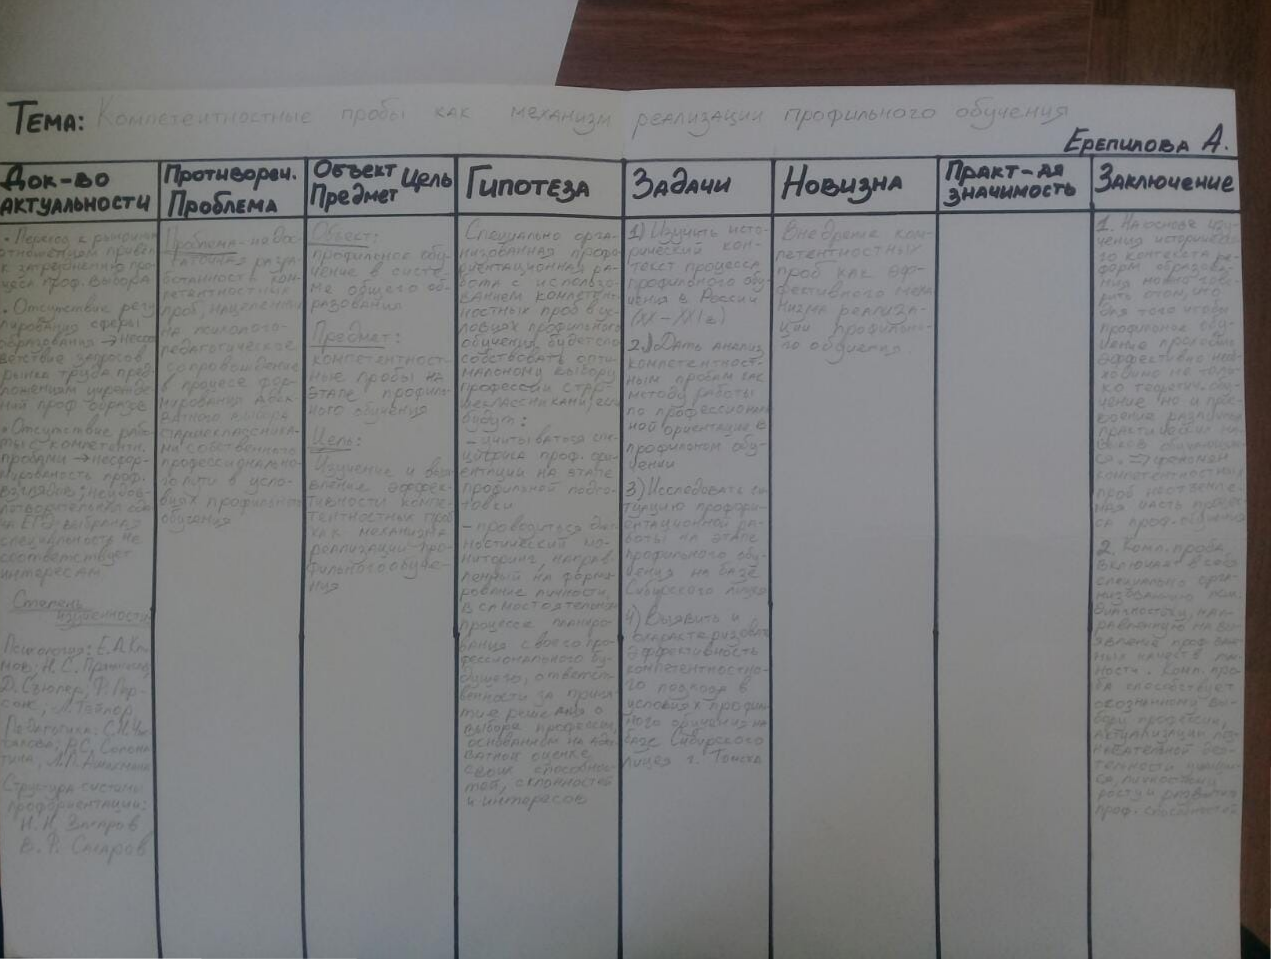 Тема: Компетентностные пробы как механизм реализации профильного обучения
Ерепилова А.
Док-во
актуальности
• Переход к рыночным
отношениям привел
к затруднению про-
цесса проф. выбора
• Отсутствие регу
лирования сферы
образования →
ветствие запросов
рынка труда пред
ложениям учрежде
ний проф. образов
• Отсутствие рабо
ты с компетентн.
пробами → несфор-
мированность проф.
взглядов; неудов-
летворительная сда
ча ЕГЭ; выбранная
специальность не
соответствует
интересам
Степень
изученности
Психология: Е.А. Кли
мов, Н.С. Пряжников
Д. Сьюпер, Ф. Пар-
сонс, Л. Тайлор
Педагогика: С.Н. Чис
тякова,
Структура системы
профориентации:
Н.Н. Захаров
В.Ф. Сахаров
Противореч.
Проблема
Проблема - недос-
таточная разра-
ботанность ком-
петентностных
проб, нацеленных
на психолого-
педагогическое
сопровождение
в процессе фор-
мирования адек-
ватного выбора
старшеклассника-
ми собственного
профессионально-
го пути в усло-
виях профильного
обучения
Объект Цель
Предмет
Объект:
профильное обу-
чение в систе-
ме общего об-
разования
Предмет:
компетентност-
ные пробы на
этапе профиль-
ного обучения
Цель:
Изучение и выя
вление эффек-
тивности компе-
тентностных проб
как механизма
реализации про-
фильного обуче-
ния
Гипотеза
Специально орга-
низованная профо-
риентационная ра-
бота с использо-
ванием компетент-
ностных проб в ус-
ловиях профильного
обучения будет спо-
собствовать опти-
мальному выбору
профессии старш-
еклассниками, если
будут:
- учитываться спе-
цифика проф. ори-
ентации на этапе
профильной подго-
товки
- проводиться диаг
ностический мо-
ниторинг, направ-
ленный на форми
рование личности,
в самостоятельном
процессе планиро-
вания своего про-
фессионального бу-
дущего, ответст-
венности за приня-
тие решения о
выборе профессии,
основанном на адек
ватной оценке
своих способнос-
тей, склонностей
и интересов
Задачи
1) Изучить исто-
рический кон-
текст процесса
профильного обу-
чения в России
(XX-XXI в.)
2) Дать анализ
компетентност-
ным пробам как
методу работы
по профессионал
ной ориентации в
профильном обу-
чении
3) Исследовать си-
туацию профори-
ентационной ра-
боты на этапе
профильного обу-
чения на базе
Сибирского лицея
4) Выявить и
охарактеризовать
эффективность
компетентностно-
го подхода в
условиях профиль-
ного обучения на
базе Сибирского
лицея г. Томска
Новизна
Внедрение ком-
петентностных
проб как эф-
фективного меха-
низма реализа-
ции профильно-
го обучения.
Практ-ая
значимость
Заключение
1. На основе изу-
чения историческо
го контекста ре-
форм образова-
ния можно гово-
рить о том, что
для того чтобы
профильное обу-
чение проходило
эффективно необ-
ходимо не толь-
ко теоретич. обу-
чение но и прис-
воение различных
практических на-
выков обучающим-
ся. => феномен
компетентностных
проб неотъемле-
мая часть процес-
са проф. обучения
2. Комп. проба,
включая в себя
специально орга-
низованную
диагностику, нап-
равленную на вы-
явление проф. важ-
ных качеств лич-
ности. Комп. про-
ба способствует
осознанному вы-
бору профессии,
актуализации поз-
навательной дея-
тельности учащих-
ся, личностному
росту и развитию
проф. способностей